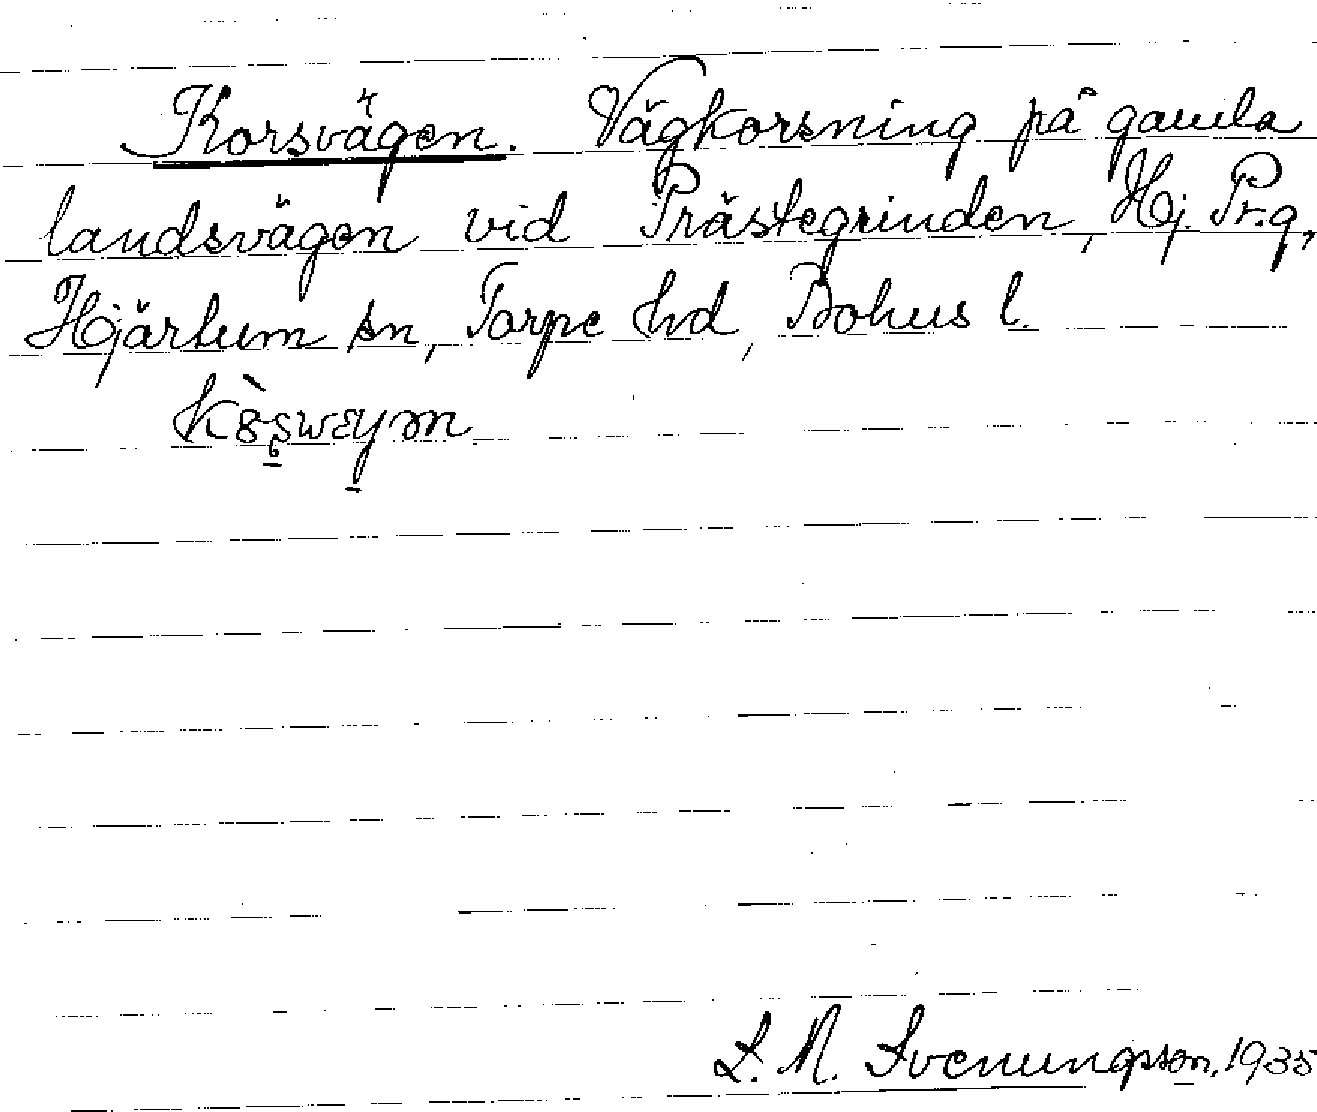 Korsvägen. Vägkorsning på gamla
landsvägen vid Prästegrinden, Hj. Pr.g,
Hjärtum sn, Torpe hd, Bohus l.
S. M. Svenungsson, 1935